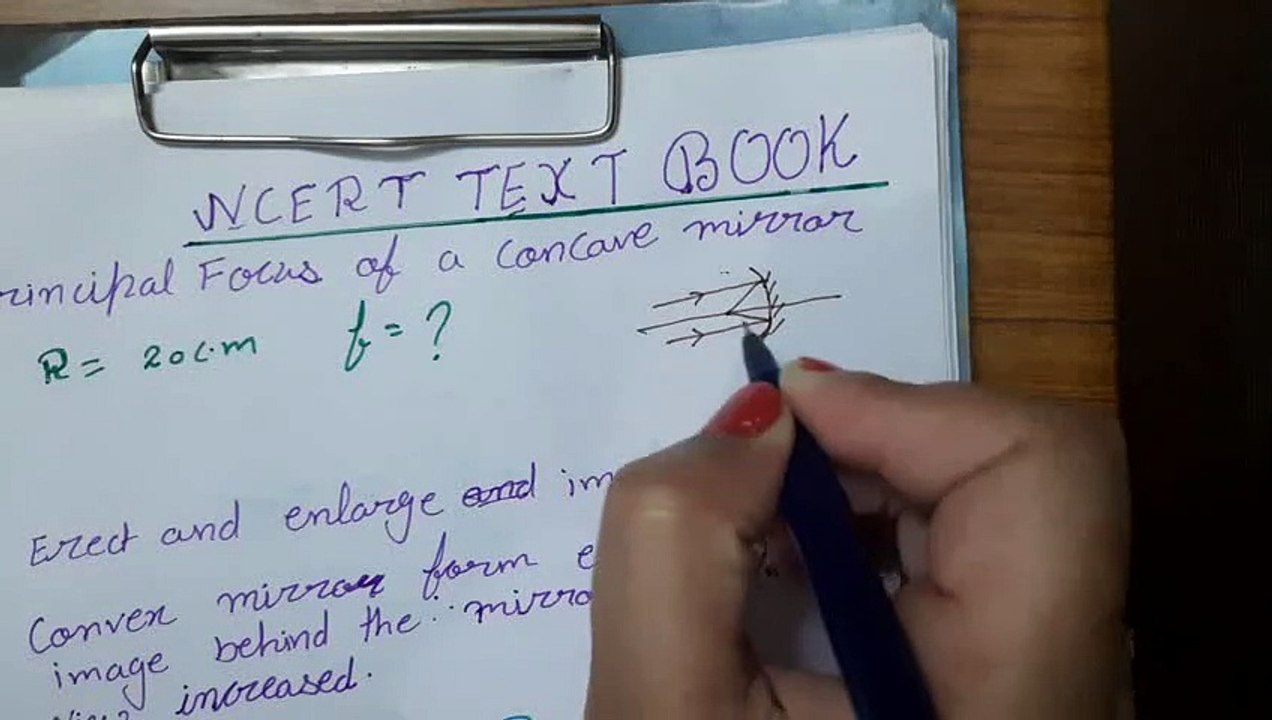 NCERT TEXT BOOK
rincipal Focus of a Concave mirror
R = 20c.m f = ?
Erect and enlarge and im
Convex mirror form e
image behind the mirro
increased.